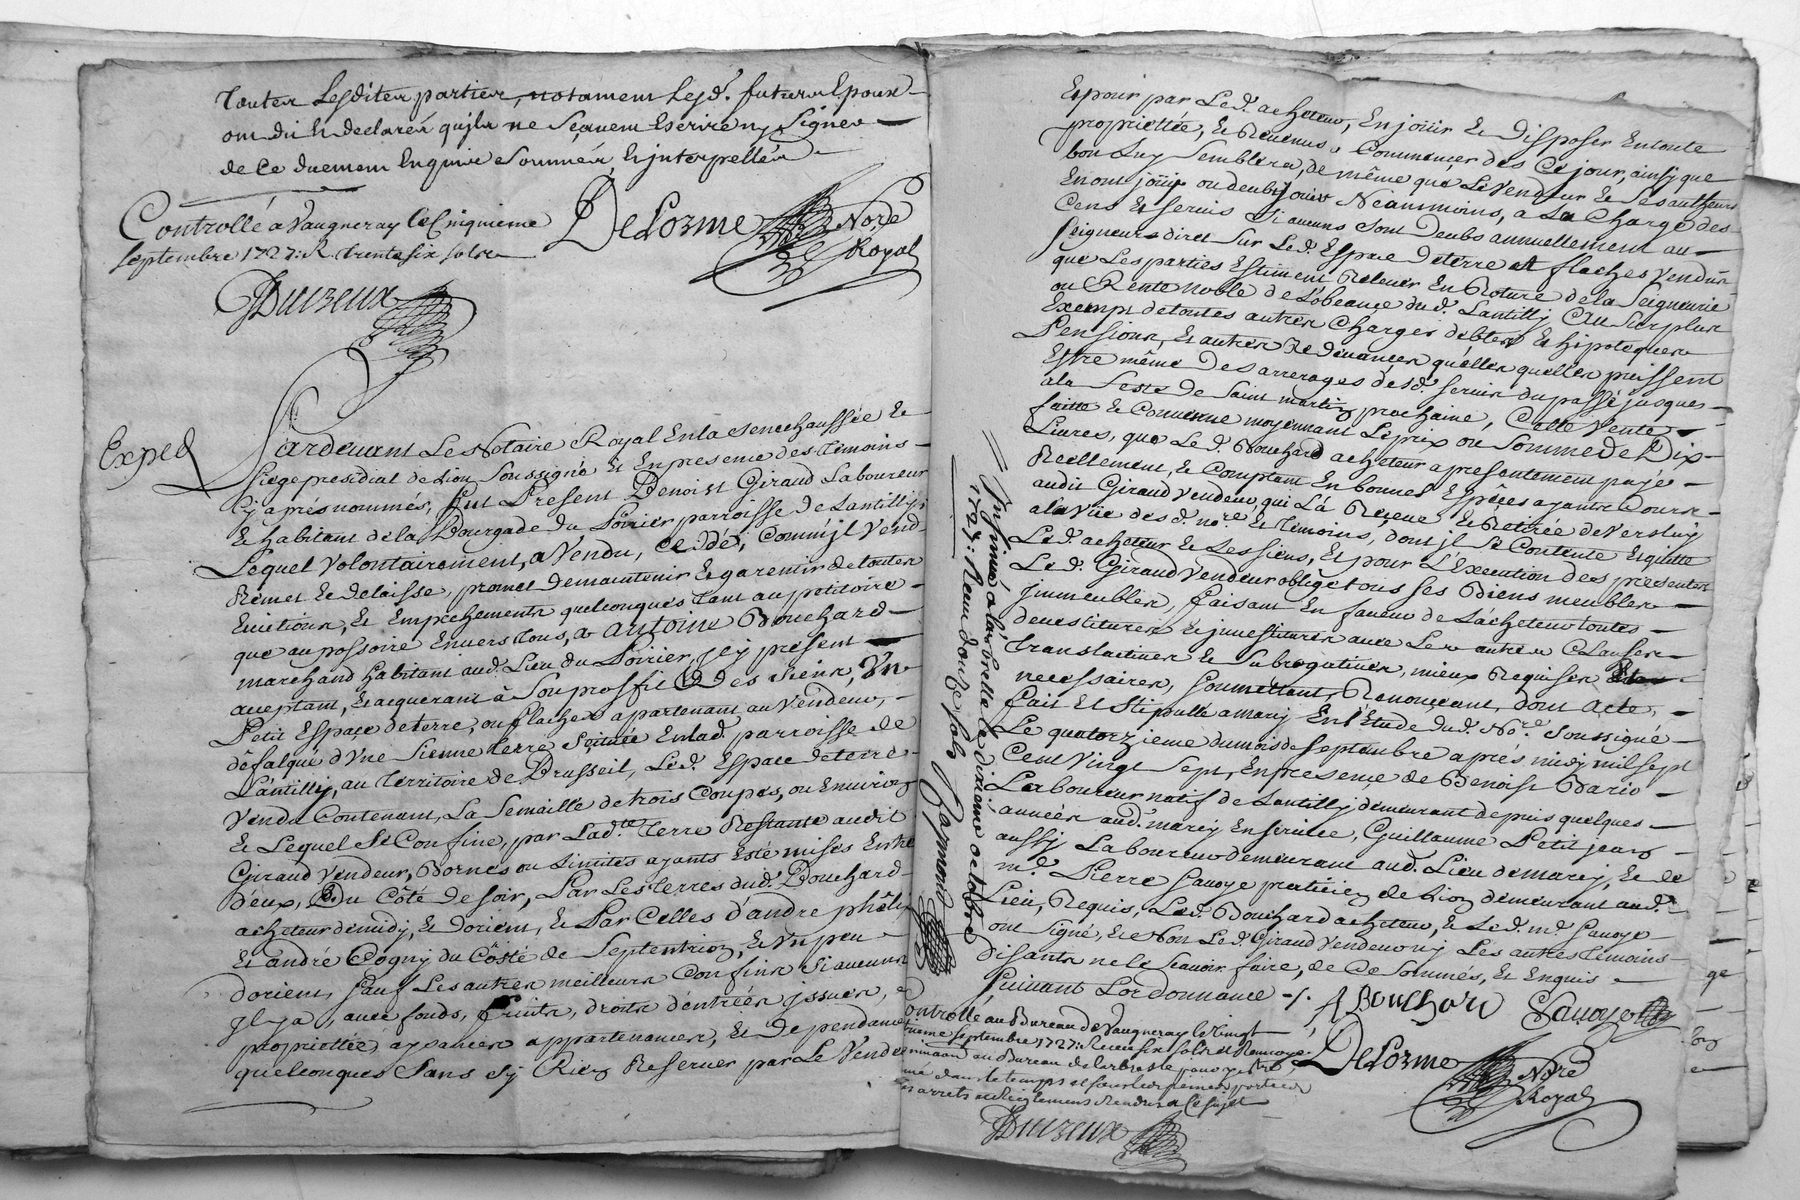 toutes Lesdites parties, notament lesd. futurs Epoux
ont dit et declarés qu'ils ne sçavent Escrire ny Signer
de ce duement Enquis et sommés et interpellés
Controllé a Vaugneray le Cinquieme
septembre 1727: R. trente six sols
DeLorme Nore
Royal
Duizeux
Exped
Pardevant Le Notaire Royal En la senechaussée et
Siege presidial de Lion Soussigné et En presence des temoins
Cy après nommés, fut Present Benoist Giraud Laboureur
et habitant de la Bourgade du Poirier parroisse de Lantilly
Lequel Volontairement, a Vendu, Ceddé, Comm'jl Vend
Remet et delaisse, promet de maintenir et garentir de toutes
Evictions, et Empechements quelconques tant au petitoire
que au possoire Envers tous, à antoine Bouchard
marchand habitant aud. Lieu du Poirier, jcy present
acceptant, et acquerant à Son proffit et des siens, Un
Petit Espace de terre, ou flaches apartenant au Vendeur,
défalqué d'Une Sienne terre Scituée En lad. parroisse de
Lantilly, au territoire de Brusseil, Led. Espace de terre
Vendu Contenant, La Semaille de trois Coupes, ou Environ
et Lequel Se Confine, par Lad.te terre Restante audit
Giraud Vendeur, Bornes ou Limites ayants Esté mises Entre
d'eux, Du Côté de soir, Par Les terres dud. Bouchard
acheteur de midy, et d'orient, et Par Celles d'andré
et andré Cogny du Côsté de Septentrion, et Un peu
d'orient, Sauf Les autres meilleurs Confins Si aucuns
Jl y a, avec fonds, fruits, droits d'entrées jssues,
proprietté, aysances appartenances, et Dependances
quelconques Sans Sy Rien Reserver par Le Vendeur
Et pour par Led. acheteur, En joüir et Disposer En toute
propriettée, et Revenus, Commencer dès Ce jour, ainsy que
bon Luy Semblera, de même que Le Vendeur et Ses autheurs
En ont joüy ou deub joüir Neammoins, a La Charge des
Cens et Servis Si aucuns Sont Deubs annuellement au
Seigneur direct Sur Led. Espace de terre et flaches Vendus
que Les parties Estiment Relever En Roture de la Seigneurie
ou Rente Noble de dud. Lantilly Au Surplus
Exempt de toutes autres Charges debtes et hipoteques
Pensions, et autres Redevances qu'elles quelles puissent
Estre même Des arrerages desd. servis du passé jusques
a la Feste de Saint martin prochaine, Cette Vente
faitte et Convenue moyennant Le prix ou Somme de Dix
Livres, que Led. Bouchard acheteur a presentement payée
Reellement, et Comptant En bonnes Espèces ayants Cours
audit Giraud Vendeur, qui L'à Reçeue et Retirée devers luy
a la Vüe des d. nore. et temoins, dont jl Se Contente et quitte
Led. acheteur et Les siens, et pour L'Execution des presentes
Led. Giraud Vendeur oblige tous ses Biens meubles
jmmeubles, faisant En faveur de L'acheteur toutes
devestitures et jnvestitures avec Les autres Clauses
translatives et Subrogatives, mieux Requises
necessaires, soumettant, Renonceant, dont acte,
fait et Stipullé a marcy En L'Etude dud. Nore. Soussigné
Le quatorzieme du mois de septembre après midy mil sept
Cent Vingt Sept, En presence de Benoist Bario
Laboureur natif de Lantilly demeurant depuis quelques
années aud. marcy En service, Guillaume Petit jean
aussy Laboureur demeurant aud. Lieu de marcy, et de
m.e Pierre Savoye praticien de Lion demeurant aud.
Lieu, Requis, Led. Bouchard acheteur, et Led. m.e Savoye
ont Signé, et Non Led. Giraud Vendeur ny Les autres temoins
disants ne le Scavoir faire, de Ce Sommés, et Enquis
Suivant Lordonnance ./.
ABouchard Savoye
DeLorme Nore
Royal
Insinué a larbrelle le dixieme octobre
1727: Receu douze sols Raymond
Controllé au Bureau de Vaugneray le Vingt
septembre 1727. Receu six sols et Renvoyé
au Bureau de larbresle pour y estre
dans le temps et sous les peines portées
les arrets et Reglemens Rendus a Ce sujet
Duizeux